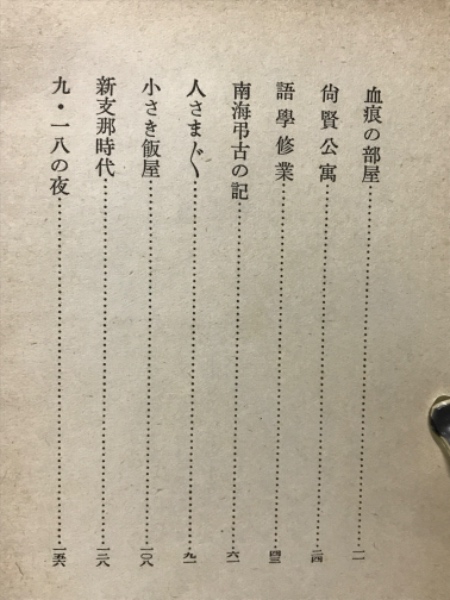 血痕の部屋……一一
尙賢公寓……二四
語學修業……四三
南海弔古の記……六一
人さま〴〵……九一
小さき飯屋……一〇八
新支那時代……一二八
九・一八の夜……一五六